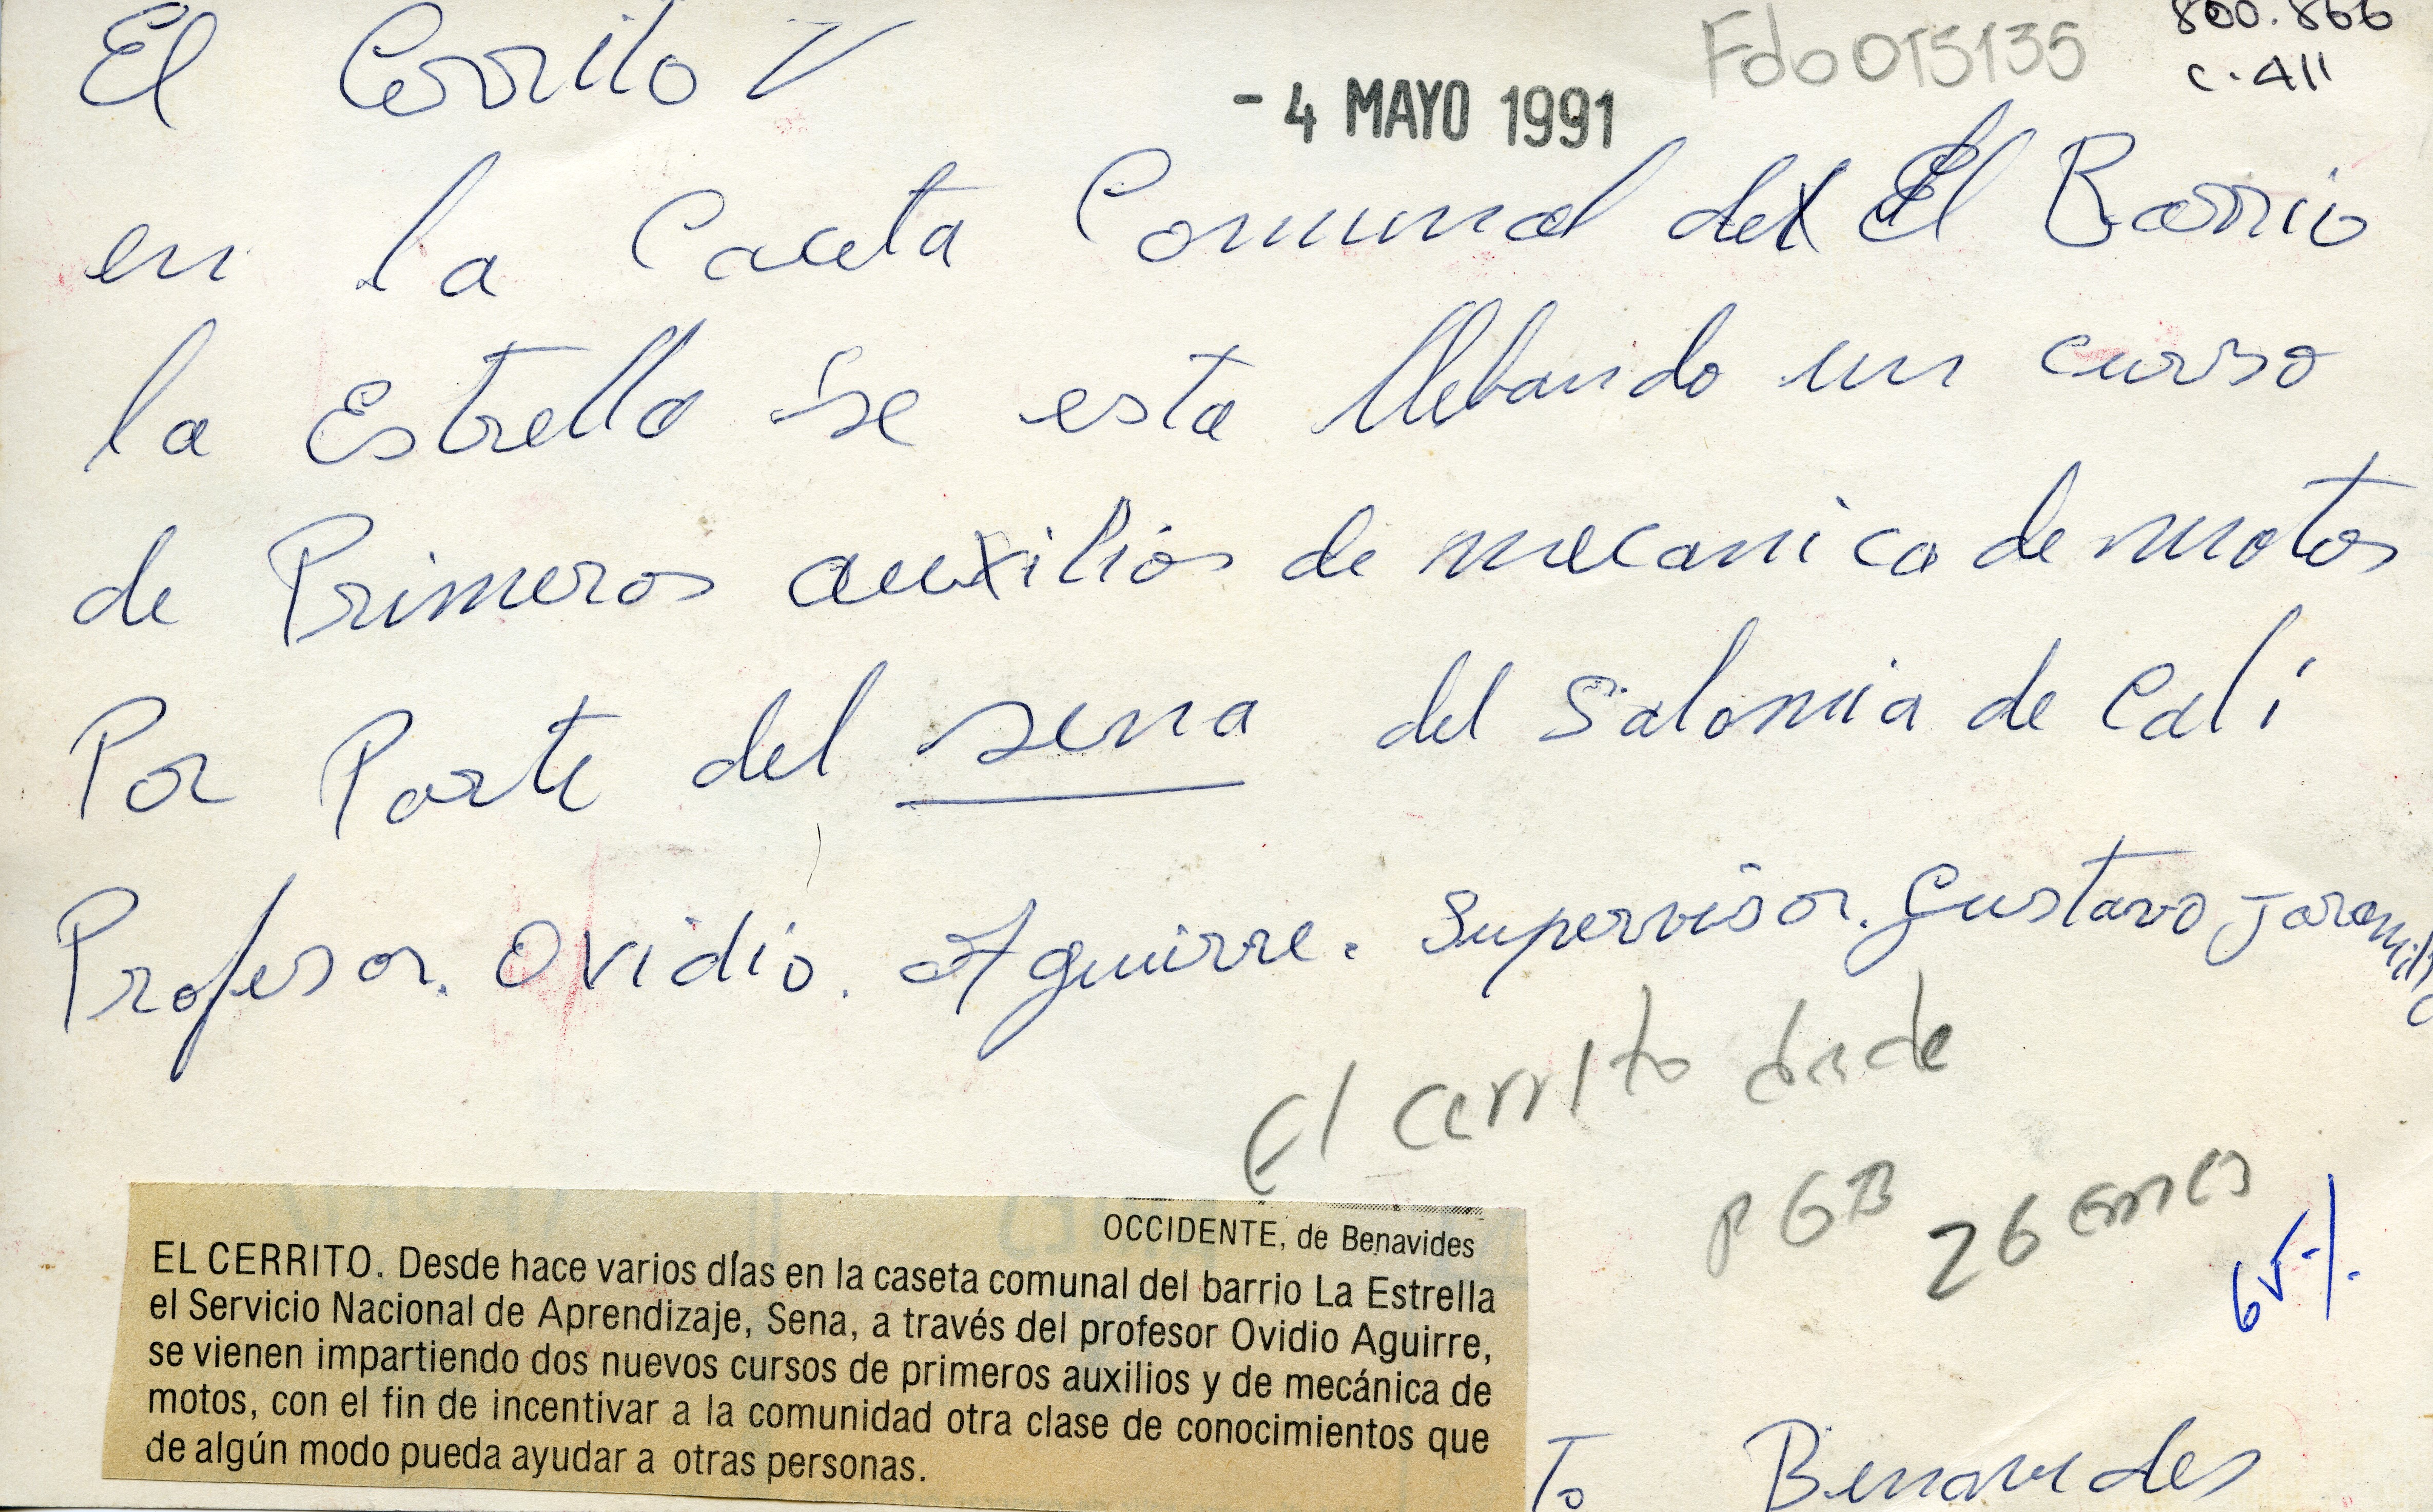 800.866
c-411
Fdo 0T5135
El Cerrito V
- 4 MAYO 1991
en la Caceta Comunal del El Barrio
la Estrella se esta llebando un curso
de Primeros auxilios de mecanica de motos
Por Parte del sena del Salomia de Cali
Profesor. Ovidio. Aguirre. Supervisor. Gustavo Jaramillo
El cerrito
PGB 26
65%
OCCIDENTE, de Benavides
EL CERRITO. Desde hace varios días en la caseta comunal del barrio La Estrella
el Servicio Nacional de Aprendizaje, Sena, a través del profesor Ovidio Aguirre,
se vienen impartiendo dos nuevos cursos de primeros auxilios y de mecánica de
motos, con el fin de incentivar a la comunidad otra clase de conocimientos que
de algún modo pueda ayudar a otras personas.
To Benavides